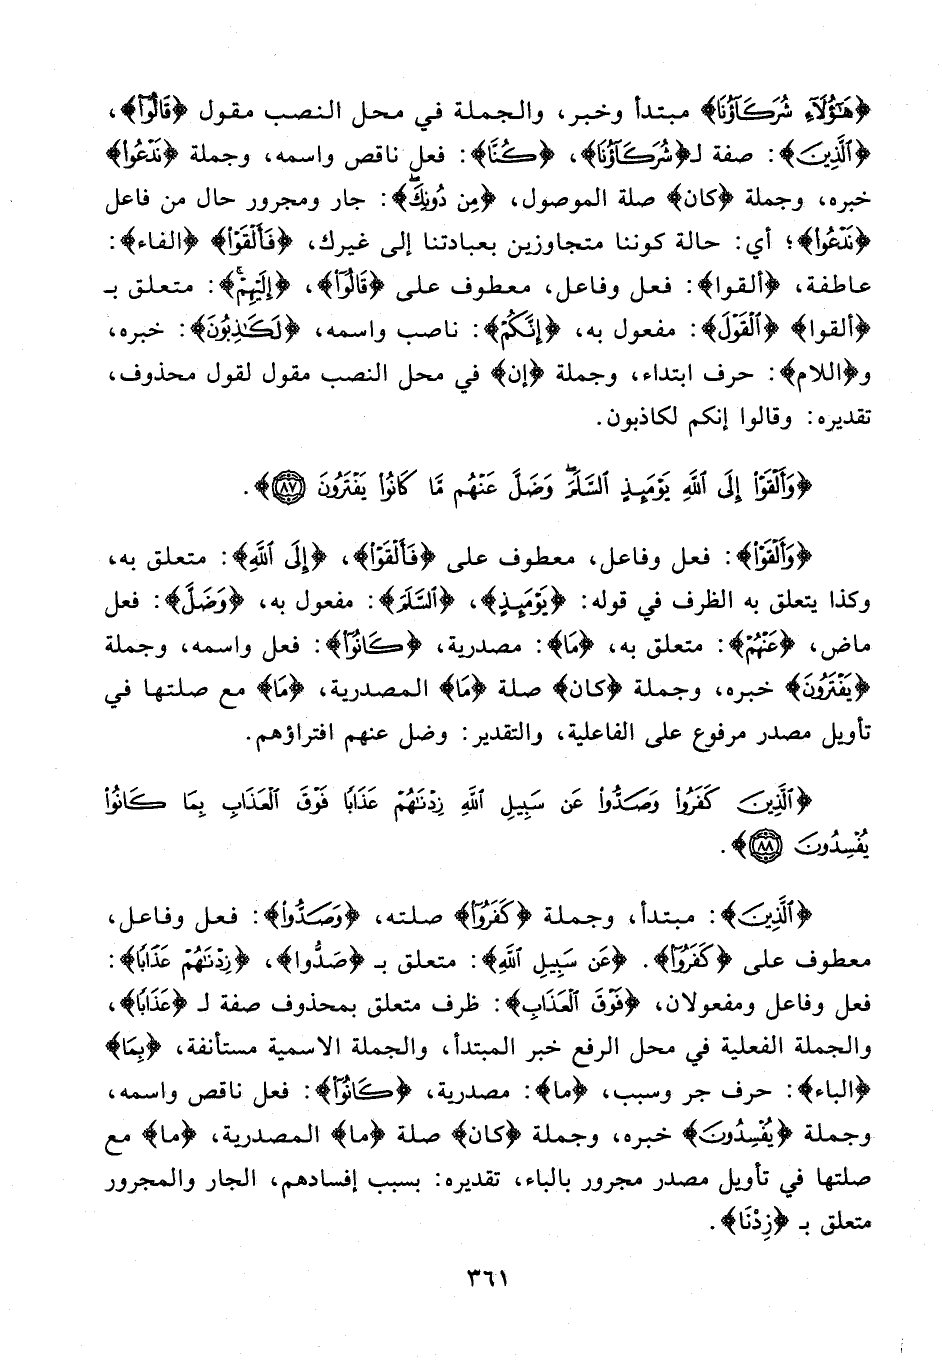 ﴿هَٰٓؤُلَآءِ شُرَكَآؤُنَا﴾ مبتدأ وخبر، والجملة في محل النصب مقول ﴿قَالُوا۟﴾،
﴿ٱلَّذِينَ﴾: صفة لـ﴿شُرَكَآؤُنَا﴾، ﴿كُنَّا﴾: فعل ناقص واسمه، وجملة ﴿نَدْعُوا۟﴾
خبره، وجملة ﴿كان﴾ صلة الموصول، ﴿مِن دُونِكَ﴾: جار ومجرور حال من فاعل
﴿نَدْعُوا۟﴾؛ أي: حالة كوننا متجاوزين بعبادتنا إلى غيرك، ﴿فَأَلْقَوْا۟﴾ ﴿الفاء﴾:
عاطفة، ﴿ألقوا﴾: فعل وفاعل، معطوف على ﴿قَالُوا۟﴾، ﴿إِلَيْهِمُ﴾: متعلق بـ
﴿ألقوا﴾ ﴿ٱلْقَوْلَ﴾: مفعول به، ﴿إِنَّكُمْ﴾: ناصب واسمه، ﴿لَكَٰذِبُونَ﴾: خبره،
و﴿اللام﴾: حرف ابتداء، وجملة ﴿إن﴾ في محل النصب مقول لقول محذوف،
تقديره: وقالوا إنكم لكاذبون.
﴿وَأَلْقَوْا۟ إِلَى ٱللَّهِ يَوْمَئِذٍ ٱلسَّلَمَ ۖ وَضَلَّ عَنْهُم مَّا كَانُوا۟ يَفْتَرُونَ ۝٨٧﴾.
﴿وَأَلْقَوْا۟﴾: فعل وفاعل، معطوف على ﴿فَأَلْقَوْا۟﴾، ﴿إِلَى ٱللَّهِ﴾: متعلق به،
وكذا يتعلق به الظرف في قوله: ﴿يَوْمَئِذٍ﴾، ﴿ٱلسَّلَمَ﴾: مفعول به، ﴿وَضَلَّ﴾: فعل
ماض، ﴿عَنْهُم﴾: متعلق به، ﴿مَا﴾: مصدرية، ﴿كَانُوا۟﴾: فعل واسمه، وجملة
﴿يَفْتَرُونَ﴾ خبره، وجملة ﴿كان﴾ صلة ﴿مَا﴾ المصدرية، ﴿مَا﴾ مع صلتها في
تأويل مصدر مرفوع على الفاعلية، والتقدير: وضل عنهم افتراؤهم.
﴿ٱلَّذِينَ كَفَرُوا۟ وَصَدُّوا۟ عَن سَبِيلِ ٱللَّهِ زِدْنَٰهُمْ عَذَابًا فَوْقَ ٱلْعَذَابِ بِمَا كَانُوا۟
يُفْسِدُونَ ۝٨٨﴾.
﴿ٱلَّذِينَ﴾: مبتدأ، وجملة ﴿كَفَرُوا۟﴾ صلته، ﴿وَصَدُّوا۟﴾: فعل وفاعل،
معطوف على ﴿كَفَرُوا۟﴾. ﴿عَن سَبِيلِ ٱللَّهِ﴾: متعلق بـ ﴿صَدُّوا﴾، ﴿زِدْنَٰهُمْ عَذَابًا﴾:
فعل وفاعل ومفعولان، ﴿فَوْقَ ٱلْعَذَابِ﴾: ظرف متعلق بمحذوف صفة لـ ﴿عَذَابًا﴾،
والجملة الفعلية في محل الرفع خبر المبتدأ، والجملة الاسمية مستأنفة، ﴿بِمَا﴾
﴿الباء﴾: حرف جر وسبب، ﴿ما﴾: مصدرية، ﴿كَانُوا۟﴾: فعل ناقص واسمه،
وجملة ﴿يُفْسِدُونَ﴾ خبره، وجملة ﴿كان﴾ صلة ﴿ما﴾ المصدرية، ﴿ما﴾ مع
صلتها في تأويل مصدر مجرور بالباء، تقديره: بسبب إفسادهم، الجار والمجرور
متعلق بـ ﴿زِدْنَا﴾.
٣٦١